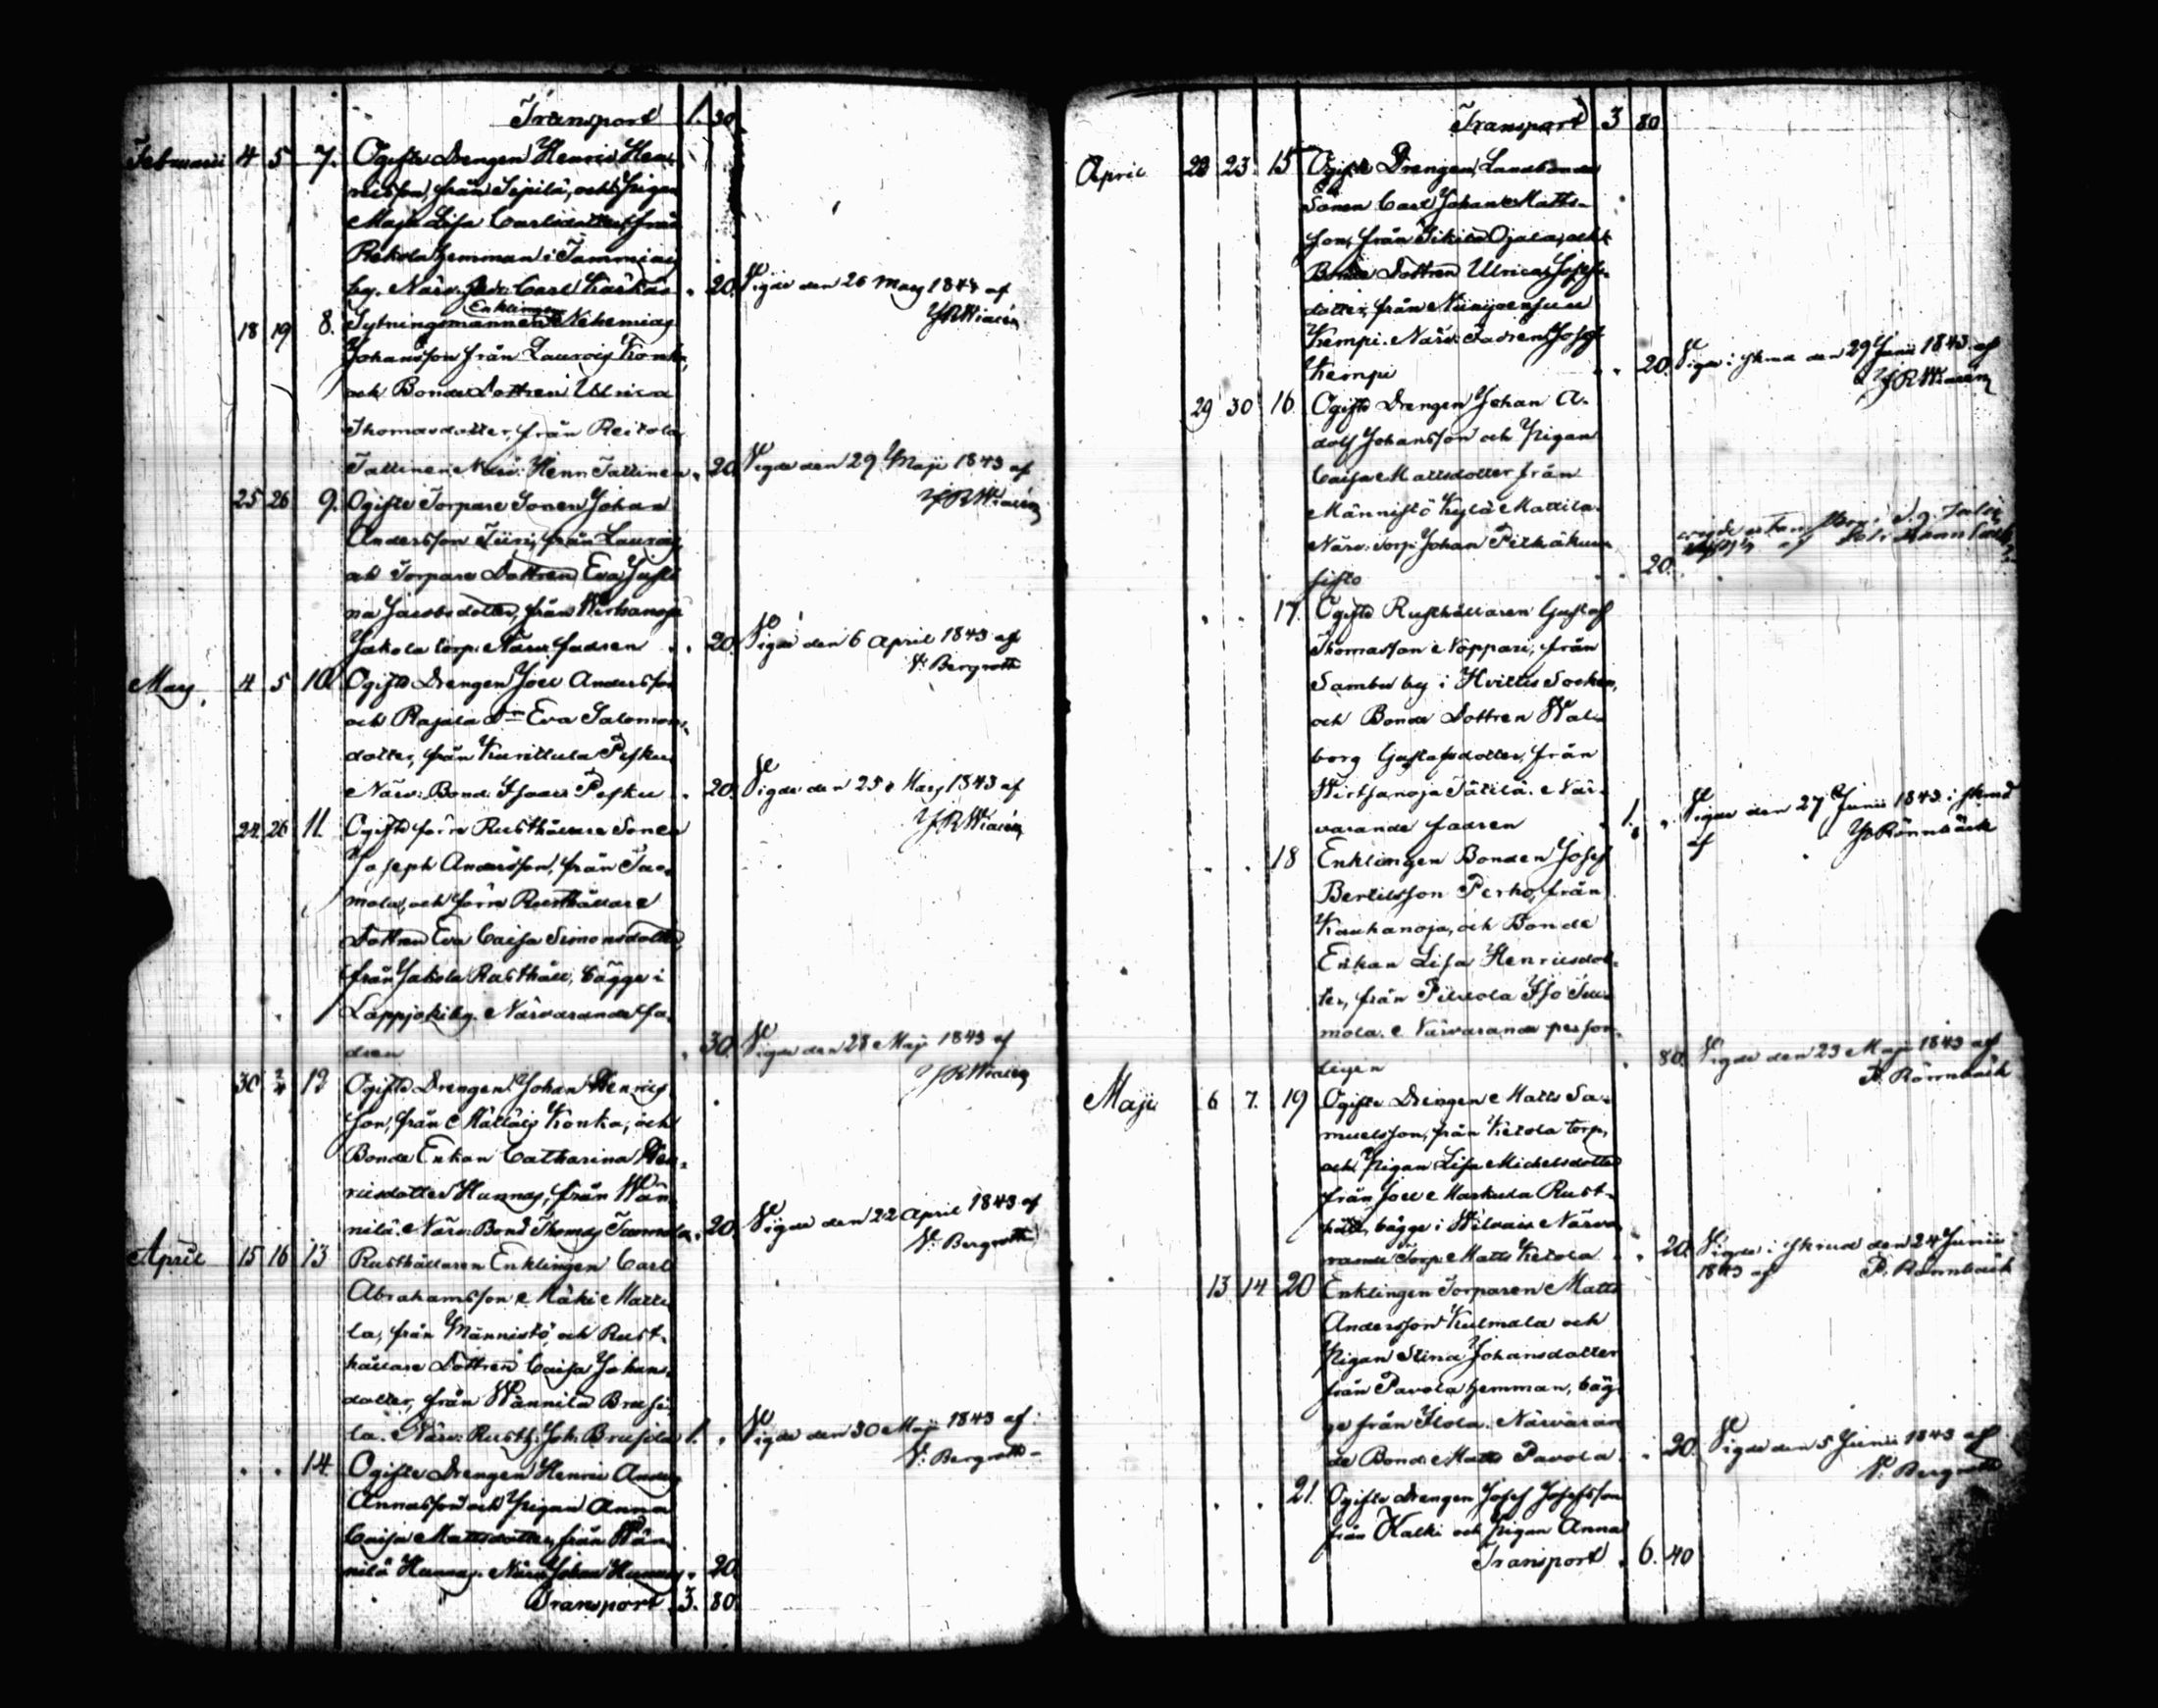 Transport 1. 30.
Februarii 4 5 7. Ogifte Drengen Henric Hen-
ricsson, från Sipilä, och Pigan
Maja Lisa Carlsdotter från
Rekola hemman i Tammiais
by. Närv: Carl Karhas " 20. Vigde den 26 May 1843 af
J R Wiacén
Enklingen
18 19 8. Sytningsmannen Nehemias
Johansson från Laurois Konka,
och Bonde Dottren Ulrica
Thomasdotter, från Reikola
Tallinen. Närv: Henr: Tallinen " 20. Vigde den 29 Maji 1843 af
J R Wiacén
25 26 9. Ogifte Torpare Sonen Johan
Andersson Tiiri, från Laurois,
och Torpare Dottren Eva Justi
na Jacobsdotter, från Wirtsanoja
Jakola torp. Närv: fadren " 20. Vigde den 6 April 1843 af
V: Bergroth
Mars 4 5 10. Ogifte Drengen Joel Andersson
och Rajala Dr Eva Salomons-
dotter, från Kurittula Pesku
Närv: Bond: Isaac Pesku " 20. Vigde den 25 Mars 1843 af
J R Wiacén
24 26 11. Ogifte förre Rusthållare Sonen
Joseph Andersson, från Tuo-
mola, och förre Rusthållare
Dottren Eva Caisa Simonsdotter
från Jakola Rusthåll, bägge i
Lappjoki by. Närvarande fa-
dren " 30. Vigde den 28 Maji 1843 af
J R Wiacén
30 2/4 12 Ogifte Drengen Johan Henrics
son, från Mällais Konka, och
Bonde Enkan Catharina Hen-
ricsdotter Hannas, från Wän
nilä. Närv: Bond: Thomas Tuomola " 20. Vigde den 22 April 1843 af
V: Bergroth
April 15 16 13 Rusthållaren Enklingen Carl
Abrahamsson Mäki Matti
la, från Männistö, och Rust-
hållare Dottren Caisa Johans-
dotter, från Wännilä Brusi
la. Närv: Rusth: Joh: Brusila 1. " Vigde den 30 Maji 1843 af
V: Bergroth
" " 14. Ogifte Drengen Henric Anders
Annasson och Pigan Anna
Caisa Mattsdotter, från Wän
nilä Hannas. Närv: Johan Hannas " 20.
Transport 3. 80.
Transport 3 80
April 22 23 15 Ogifte Drengen, Landbonde
Sonen Carl Johan Matts-
son, från Sikilä Ojala, och
Bonde Dottren Ulrica Josefs-
dotter, från
Kempi. Närv: Fadren Josef
Kempi " 20. Vigde i skrud den 29 Junii 1843 af
J R Wiacén
29 30 16 Ogifte Drengen Johan A-
dolf Johansson och Pigan
Caisa Mattsdotter från
Männistö Kylä Mattila.
Närv: Torp: Johan Pitkäkurn
" 20.
" " 17. Ogifte Rusthållaren Gustaf
Thomasson Noppari, från
Sambu by i Hvittis Socken,
och Bonde Dottren Wal-
borg Gustafsdotter, från
Wirtsanoja Tätilä. När-
varande fadren 1. " Vigde den 27 Junii 1843 i skrud
af P Rönnbäck
" " 18 Enklingen Bonden Josef
Bertilsson Perho, från
Kauhanoja, och Bonde
Enkan Lisa Henricsdot-
ter, från Pilkola Iso Tuo
mola. Närvarande person-
ligen " 80. Vigde den 23 Maji 1843 af
P. Rönnbäck
Maji 6 7. 19 Ogifte Drengen Matts Sa-
muelsson, från Ketola torp,
och Pigan Lisa Michelsdotter
från Joel Markula Rust-
håll, bägge i Wilvais. Närva
rande Torp: Matts Ketola " 20. Vigde i skrud den 24 Junii
1843 af P. Rönnbäck
13 14 20 Enklingen Torparen Matts
Andersson Kulmala och
Pigan Stina Johansdotter
från Pavola hemman, bäg
ge från Ilola. Närvaran
de Bond: Matts Pavola " 20. Vigde den 5 Junii 1843 af
V: Bergroth
" " 21. Ogifte Drengen Josef Josefsson
från Kalki och Pigan Anna
Transport 6. 40